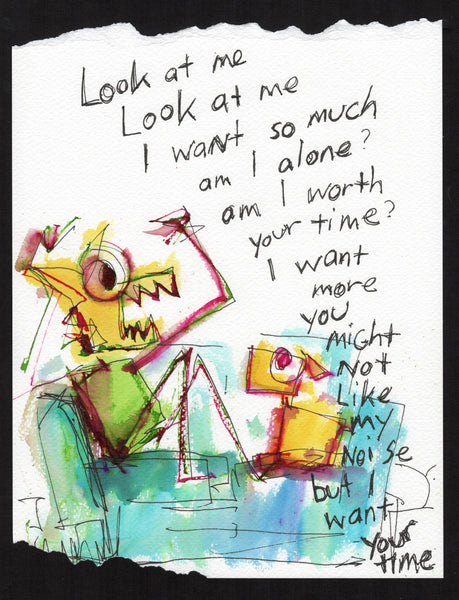 Look at me
Look at me
I want so much
am I alone?
am I worth
your time?
I want
more
you
might
Not
Like
my
Noise
but I
want
your
time